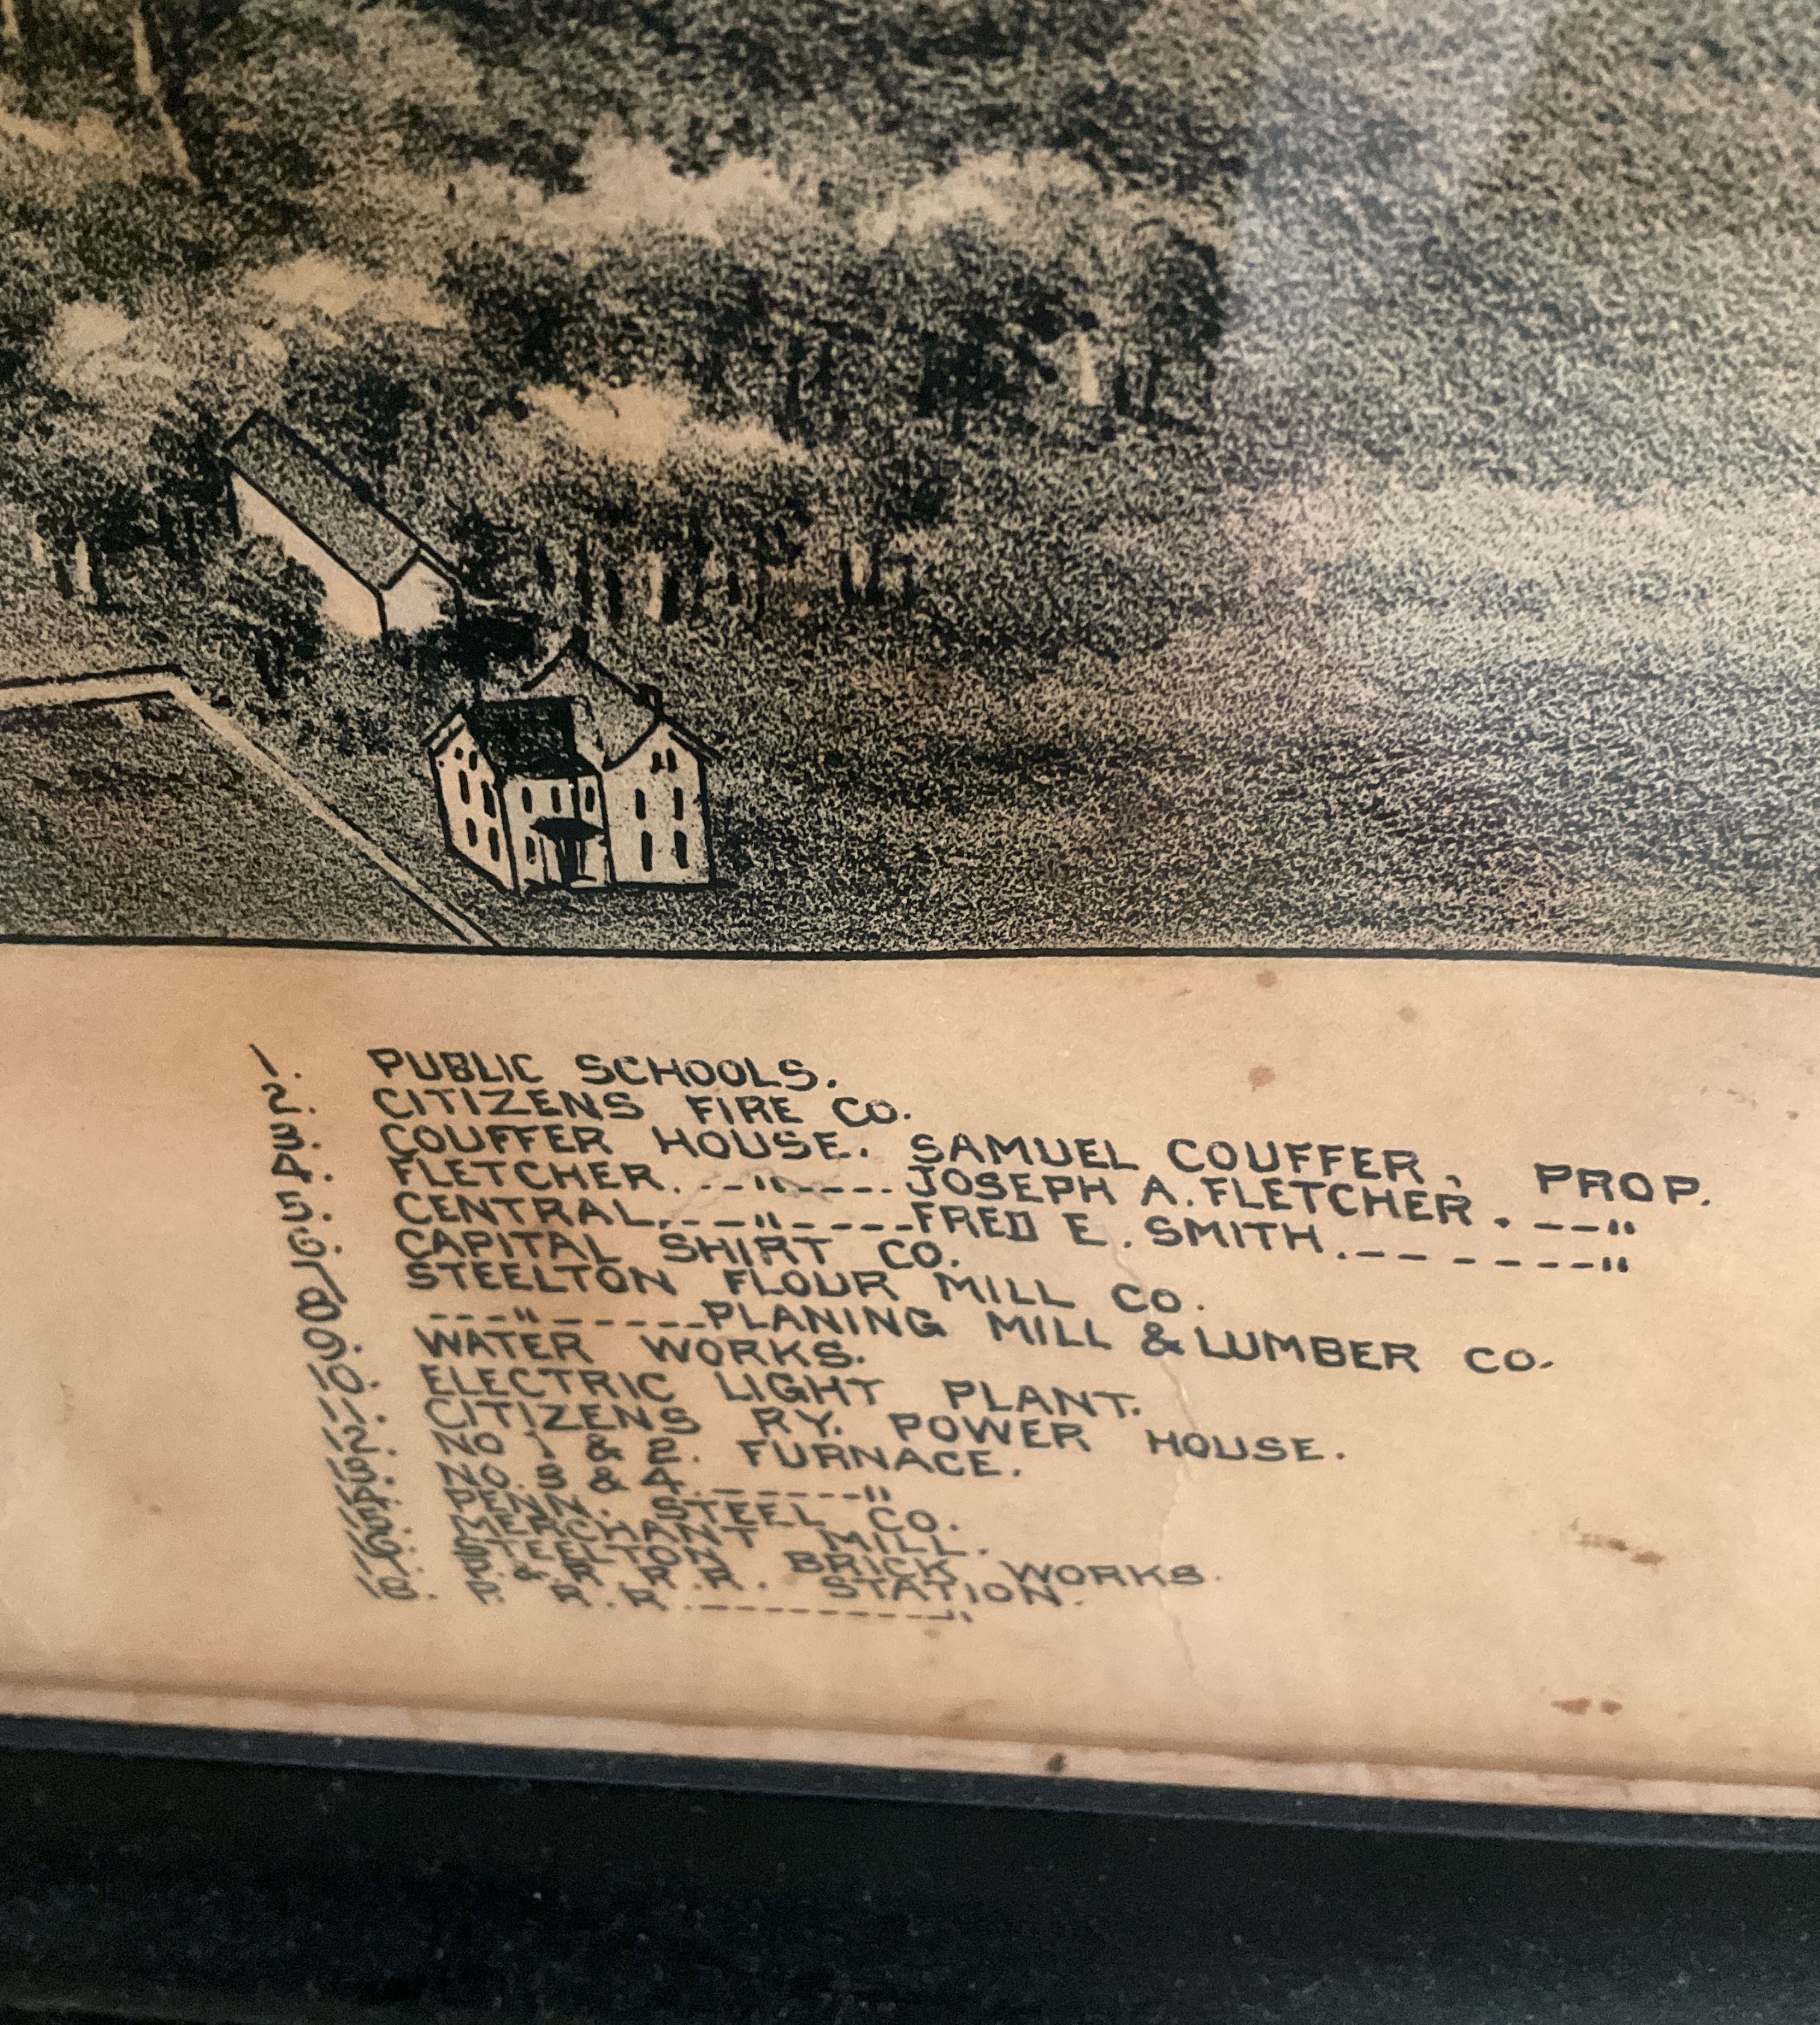 1. PUBLIC SCHOOLS.
2. CITIZENS FIRE CO.
3. COUFFER HOUSE. SAMUEL COUFFER, PROP.
4. FLETCHER. --"---- JOSEPH A. FLETCHER. --"
5. CENTRAL. ---"---- FRED E. SMITH. -------"
6. CAPITAL SHIRT CO.
7. STEELTON FLOUR MILL CO.
8. ---"----- PLANING MILL & LUMBER CO.
9. WATER WORKS.
10. ELECTRIC LIGHT PLANT.
11. CITIZENS RY. POWER HOUSE.
12. NO 1 & 2. FURNACE.
13. NO. 3 & 4. ------"
14. PENN. STEEL CO.
15. MERCHANT MILL.
16. STEELTON BRICK WORKS.
17. P. & R. R.R. STATION.
18. P. R.R. ----------"